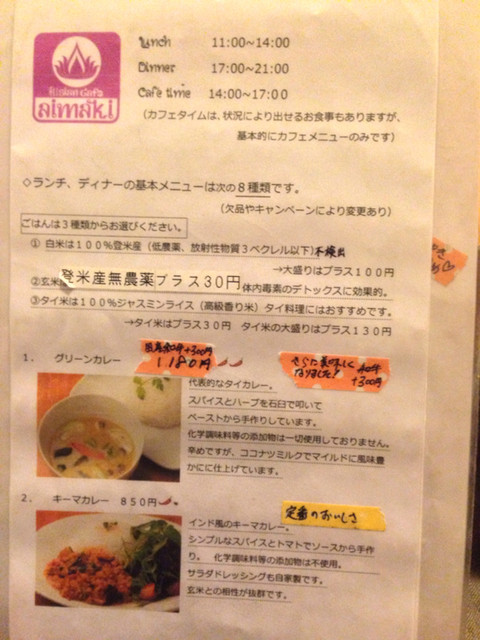 Asian Cafe
aimaki
Lunch 11:00~14:00
Dinner 17:00~21:00
Cafe time 14:00~17:00
(カフェタイムは、状況により出せるお食事もありますが、
基本的にカフェメニューのみです)
◇ランチ、ディナーの基本メニューは次の8種類です。
(欠品やキャンペーンにより変更あり)
ごはんは3種類からお選びください。
① 白米は100%登米産(低農薬、放射性物質3ベクレル以下)不検出
→大盛りはプラス100円
②玄米 登米産無農薬プラス30円 体内毒素のデトックスに効果的。
③タイ米は100%ジャスミンライス(高級香り米)タイ料理にはおすすめです。
→タイ米はプラス30円 タイ米の大盛りはプラス130円
1. グリーンカレー
+300円
1180円
さらに美味しく
なりました!
+300円
代表的なタイカレー。
スパイスとハーブを石臼で叩いて
ペーストから手作りしています。
化学調味料等の添加物は一切使用しておりません。
辛めですが、ココナツミルクでマイルドに風味豊
かに仕上げています。
2. キーマカレー 850円
定番のおいしさ
インド風のキーマカレー。
シンプルなスパイスとトマトでソースから手作
り。 化学調味料等の添加物は不使用。
サラダドレッシングも自家製です。
玄米との相性が抜群です。